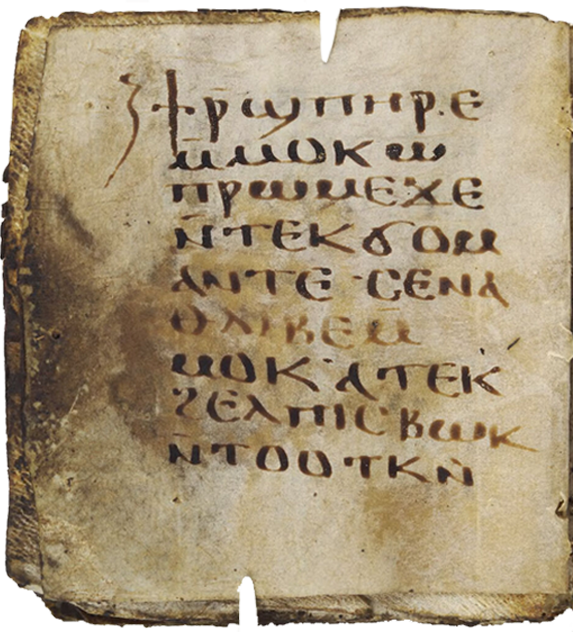 ϯⲣϣⲡⲏⲣⲉ
ⲙⲙⲟⲕ ⲱ
ⲡⲣⲱⲙⲉ ϫⲉ
ⲛ̄ⲧⲉⲕϭⲟⲙ
ⲁⲛⲧⲉ · ⲥⲉⲛⲁ
ⲑⲗⲓⲃⲉ ⲙ̄
ⲙⲟⲕ ⲁⲧⲉⲕ
ϩⲉⲗⲡⲓⲥ ⲃⲱⲕ
ⲛ̄ⲧⲟⲟⲧⲕ ⲛ̄